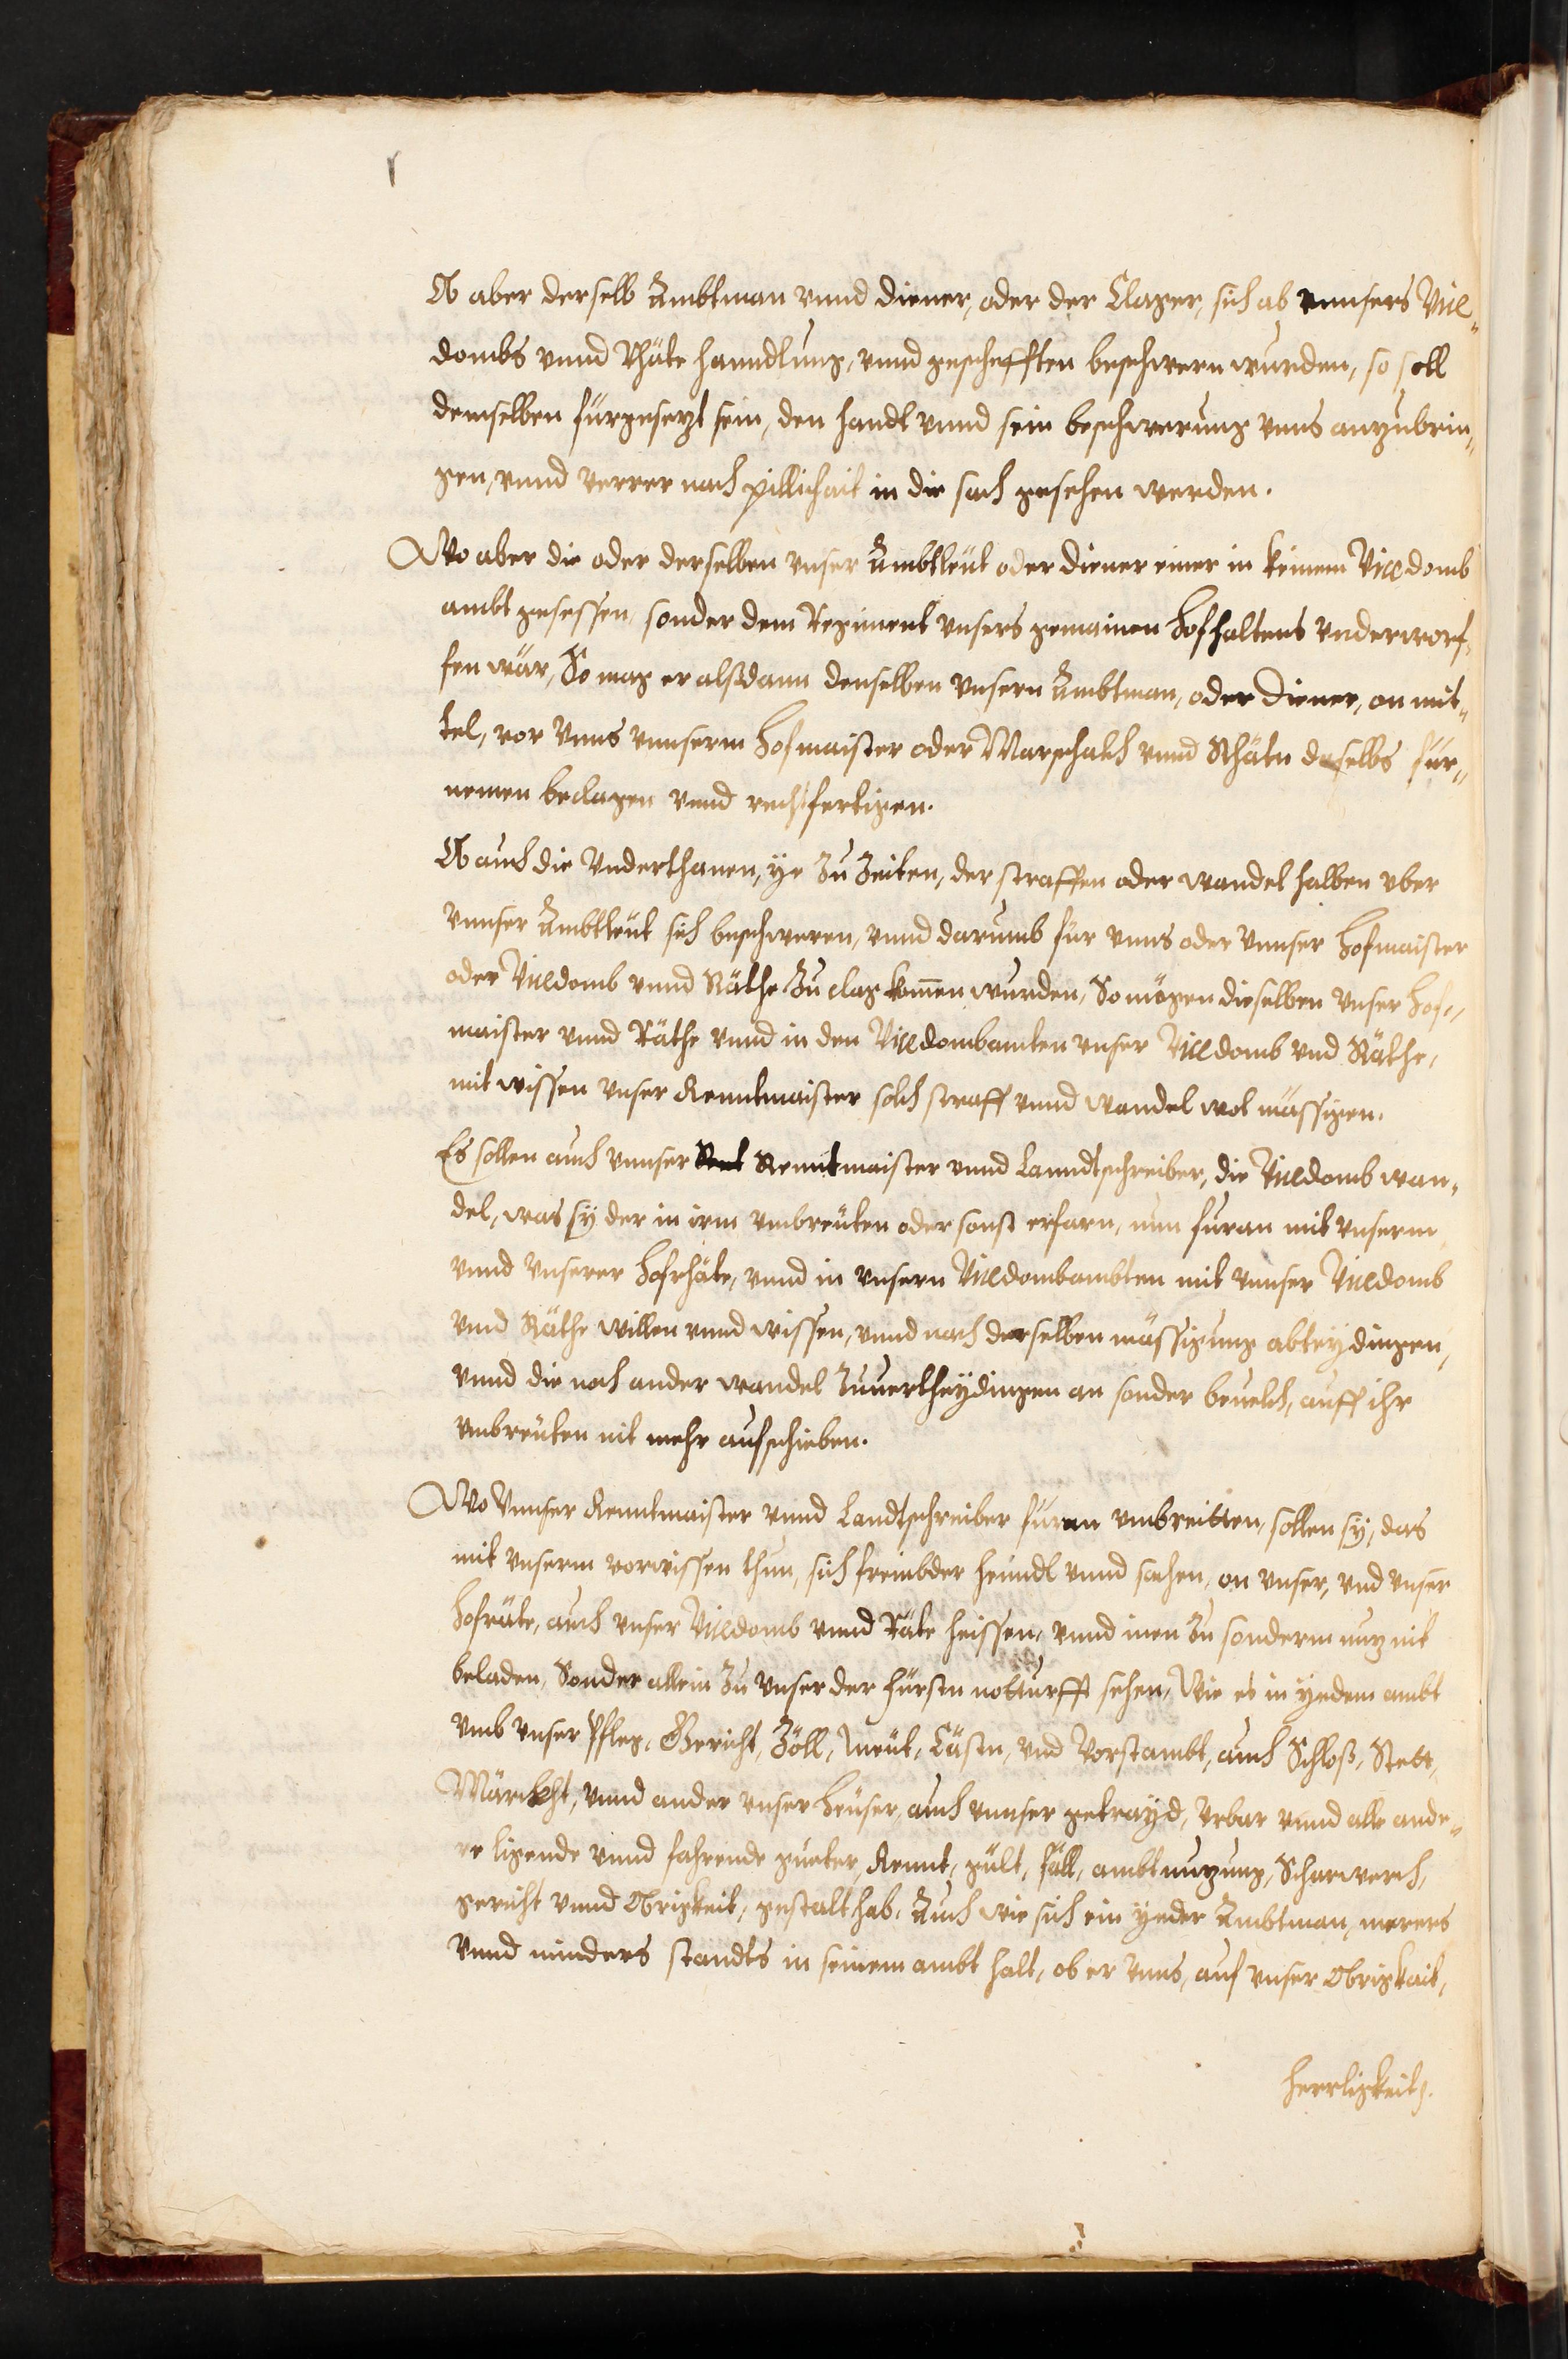 Ob aber derselb Ambtman vnnd diener, oder der Clager, sich ab vnnsers Vice„
dombs vnnd Rhäte hanndlung, vnnd geschefften beschwern wurden, so soll
demselben fürgesezt sein, den handl vnnd sein beschwerung vnns anzubrin„
gen, vnnd verrer nach pillichait in die sach gesehen werden.
Wo aber die oder derselben vnser Ambtleut oder diener einer in keinem Vicedomb
ambt gesessen, sonder dem Regiment vnsers gemainen Hofhaltens vnderworf„
fen wär, So mag er alßdann denselben vnsern Ambtman, oder Diener, on mit„
tel, vor vnns vnnserm Hofmaister oder Marschalch vnnd Rhätn daselbs für„
nemen beclagen vnnd rechtfertigen.
Ob auch die Vnderthanen, ye zu Zeiten, der straffen oder wandel halben vber
vnnser Ambtleut sich beschweren, vnnd darumb für vnns oder vnnser Hofmaister
oder Vicedomb vnnd Räthe zu clag komen wurden, So mögen dieselben vnser Hof„
maister vnnd Räthe vnnd in den Vicedombambten vnser Vicedomb vnd Räthe,
mit wissen vnser Renntmaister solch straff vnnd wandel wol mässigen.
Es sollen auch vnnser Renntmaister vnnd Lanndtschreiber, die Vicedomb wan„
del, was sy der in irm vmbreuten oder sonst erfarn, nun füran mit vnserm
vnnd vnserer Hofrhäte, vnnd in vnsern Vicedombambten mit vnnser Vicedomb
vnnd Räthe willen vnnd wissen, vnnd nach derselben mässigung abteydingen,
vnnd die noch ander wandel zuuertheydingen an sonder beuelch, auff ihr
vmbreuten nit mehr aufschieben.
Wo vnnser Renntmaister vnnd Landtschreiber füran vmbreitten, sollen sy, das
mit vnserm vorwissen thun, sich frembder hanndl vnnd sachen, on vnser, vnd vnser
Hofräte, auch vnser Vicedomb vnnd Räte heissen, vnnd inen zu sonderm nuz nit
beladen, Sonder allein zu vnser der Fürsten notturfft sehen, Wie es in yedem ambt
vmb vnser Pfleg, Gericht, Zöll, Meut, Cästn, vnd Vorstambt, auch Schloß, Stett,
Märckht, vnnd ander vnser Heuser, auch vnnser getrayd, Vrbar vnnd alle ande„
re ligende vnnd fahrende güeter, Rennt, gült, fäll, ambtnuzung, Scharwerch,
gericht vnnd Obrigkeit, gestalt hab. Auch wie sich ein yeder Ambtman, merers
vnnd minders standts in seinem ambt halt, ob er vnns, auf vnser Obrigkait,
Herrligkeit,